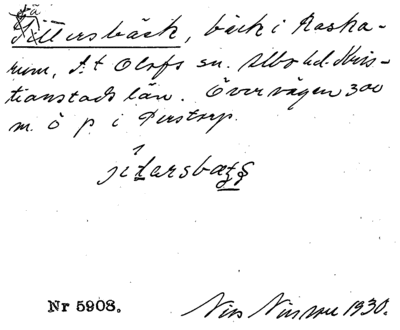 Jillersbäck, bäck i Raska-
rum, S:t Olofs sn. Albo hd. Kris-
tianstads län. Över vägen 300
m. ö p i Perstorp.
Nr 5908.
Nils Nilsson 1930.